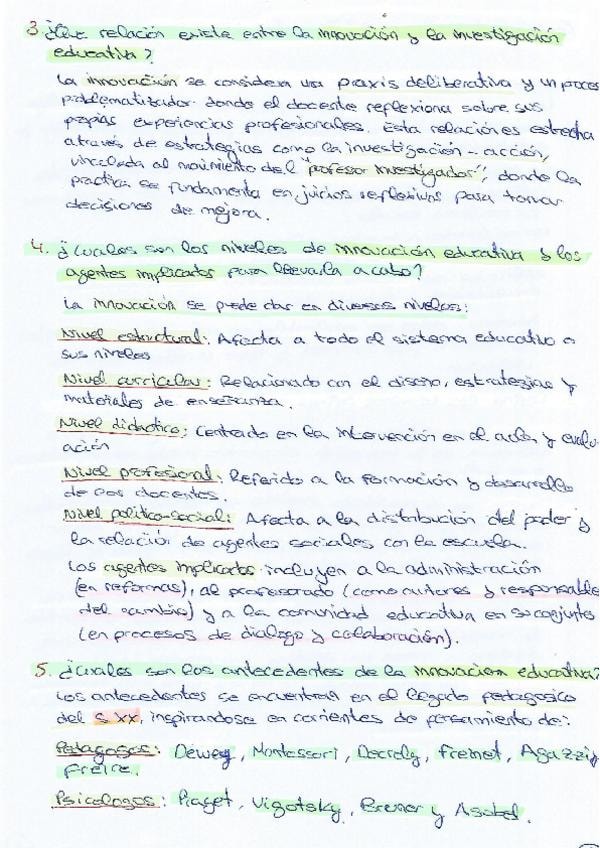 3. ¿Que relación existe entre la innovación y la investigación
educativa?
La innovación se considera una praxis deliberativa y un proces
problematizador donde el docente reflexiona sobre sus
propias experiencias profesionales. Esta relación es estrecha
através de estrategias como la investigación-acción,
vinculada al movimiento del "profesor investigador", donde la
practica se fundamenta en juicios reflexivos para tomar
decisiones de mejora.
4. ¿Cuales son los niveles de innovación educativa y los
agentes implicados para llevarla a cabo?
La innovación se puede dar en diversos niveles:
Nivel estructural: Afecta a todo el sistema educativo o
sus niveles
Nivel curricular: Relacionado con el diseño, estrategias y
materiales de enseñanza.
Nivel didactico: Centrado en la intervención en el aula y evalu-
ación
Nivel profesional: Referido a la formación y desarrollo
de los docentes.
Nivel politico-social: Afecta a la distribución del poder y
la relación de agentes sociales con la escuela.
Los agentes implicados incluyen a la administración
(en reformas), al profesorado (como autores y responsable
del cambio) y a la comunidad educativa en su conjunto
(en procesos de dialogo y colaboración).
5. ¿Cuales son los antecedentes de la innovacion educativa?
Los antecedentes se encuentran en el legado pedagogico
del s XX, inspirandose en corrientes de pensamiento de:
Pedagogos: Dewey, Montessori, Decroly, Freinet, Agazzi y
Freire.
Psicologos: Piaget, Vigotsky, Bruner y Asubel.